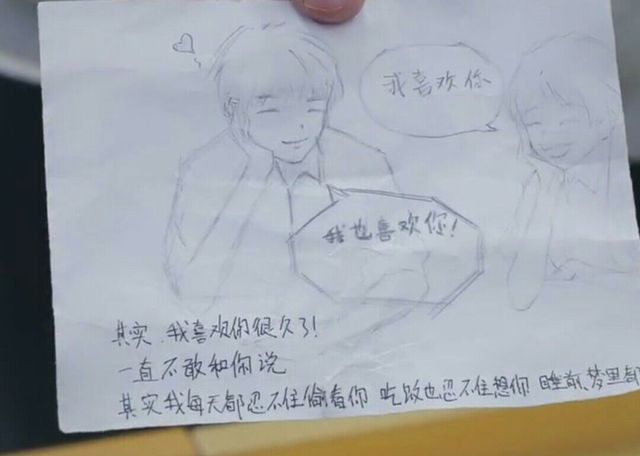 我喜欢你
我也喜欢你!
其实,我喜欢你很久了!
一直不敢和你说
其实我每天都忍不住偷看你 吃饭也忍不住想你 睡前,梦里都